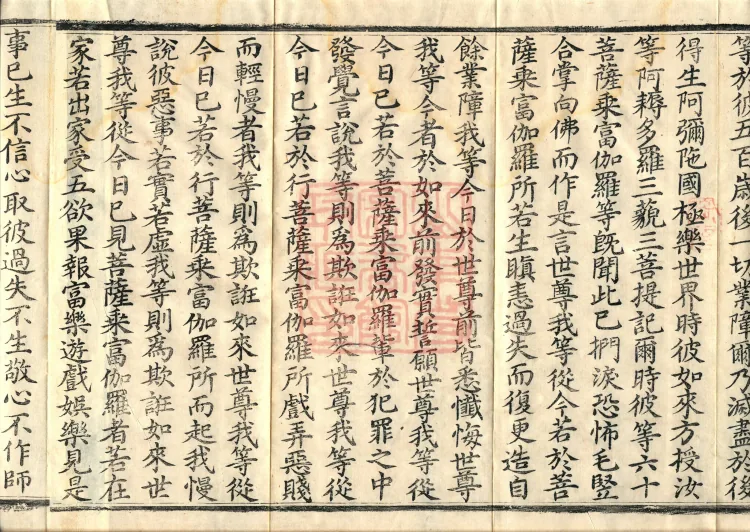 等於彼五百歲後一切業障爾乃滅盡於後
得生阿彌陁國極樂世界時彼如來方授汝
等阿耨多羅三藐三菩提記爾時彼等六十
菩薩乘富伽羅等旣聞此已捫淚恐怖毛竪
合掌向佛而作是言世尊我等從今若於菩
薩乘富伽羅所若生瞋恚過失而復更造自
餘業障我等今日於世尊前皆悉懺悔世尊
我等今者於如來前發實誓願世尊我等從
今日已若於菩薩乘富伽羅輩於犯罪之中
發覺言說我等則爲欺誑如來世尊我等從
今日已若於行菩薩乘富伽羅所戲弄惡賤
而輕慢者我等則爲欺誑如來世尊我等從
今日已若於行菩薩乘富伽羅所而起我慢
說彼惡事若實若虛我等則爲欺誑如來世
尊我等從今日已見菩薩乘富伽羅者若在
家若出家受五欲果報富樂遊戲娛樂見是
事已生不信心取彼過失不生敬心不作師